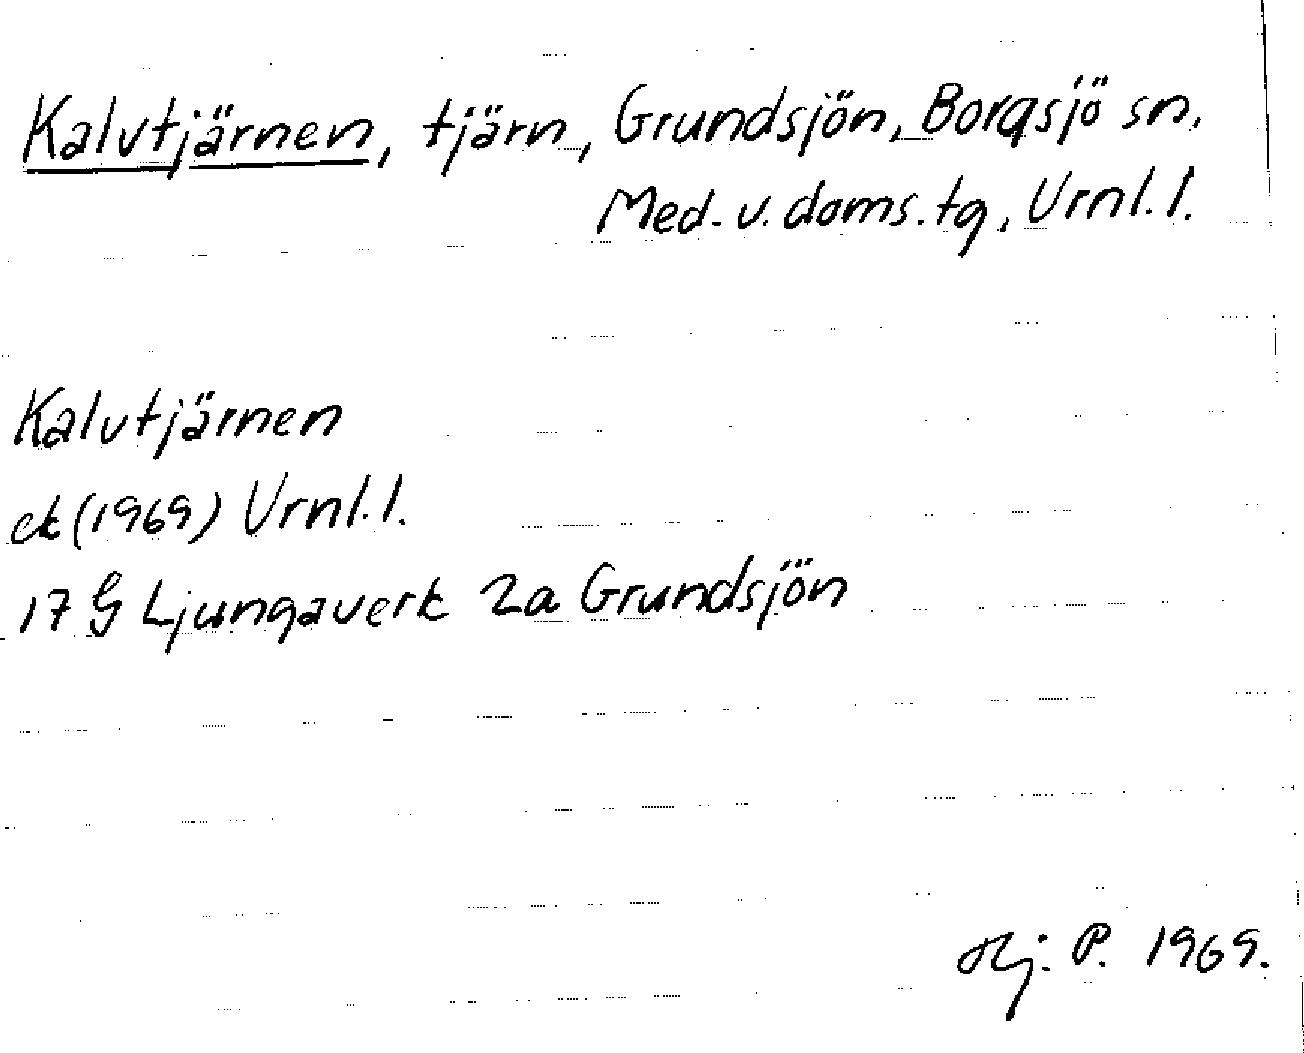 Kalvtjärnen, tjärn, Grundsjön, Borgsjö sn,
Med. v. doms. tg, Vrnl. l.
Kalvtjärnen
ek (1969) Vrnl. l.
17 G Ljungaverk 2a Grundsjön
Hj. P. 1969.